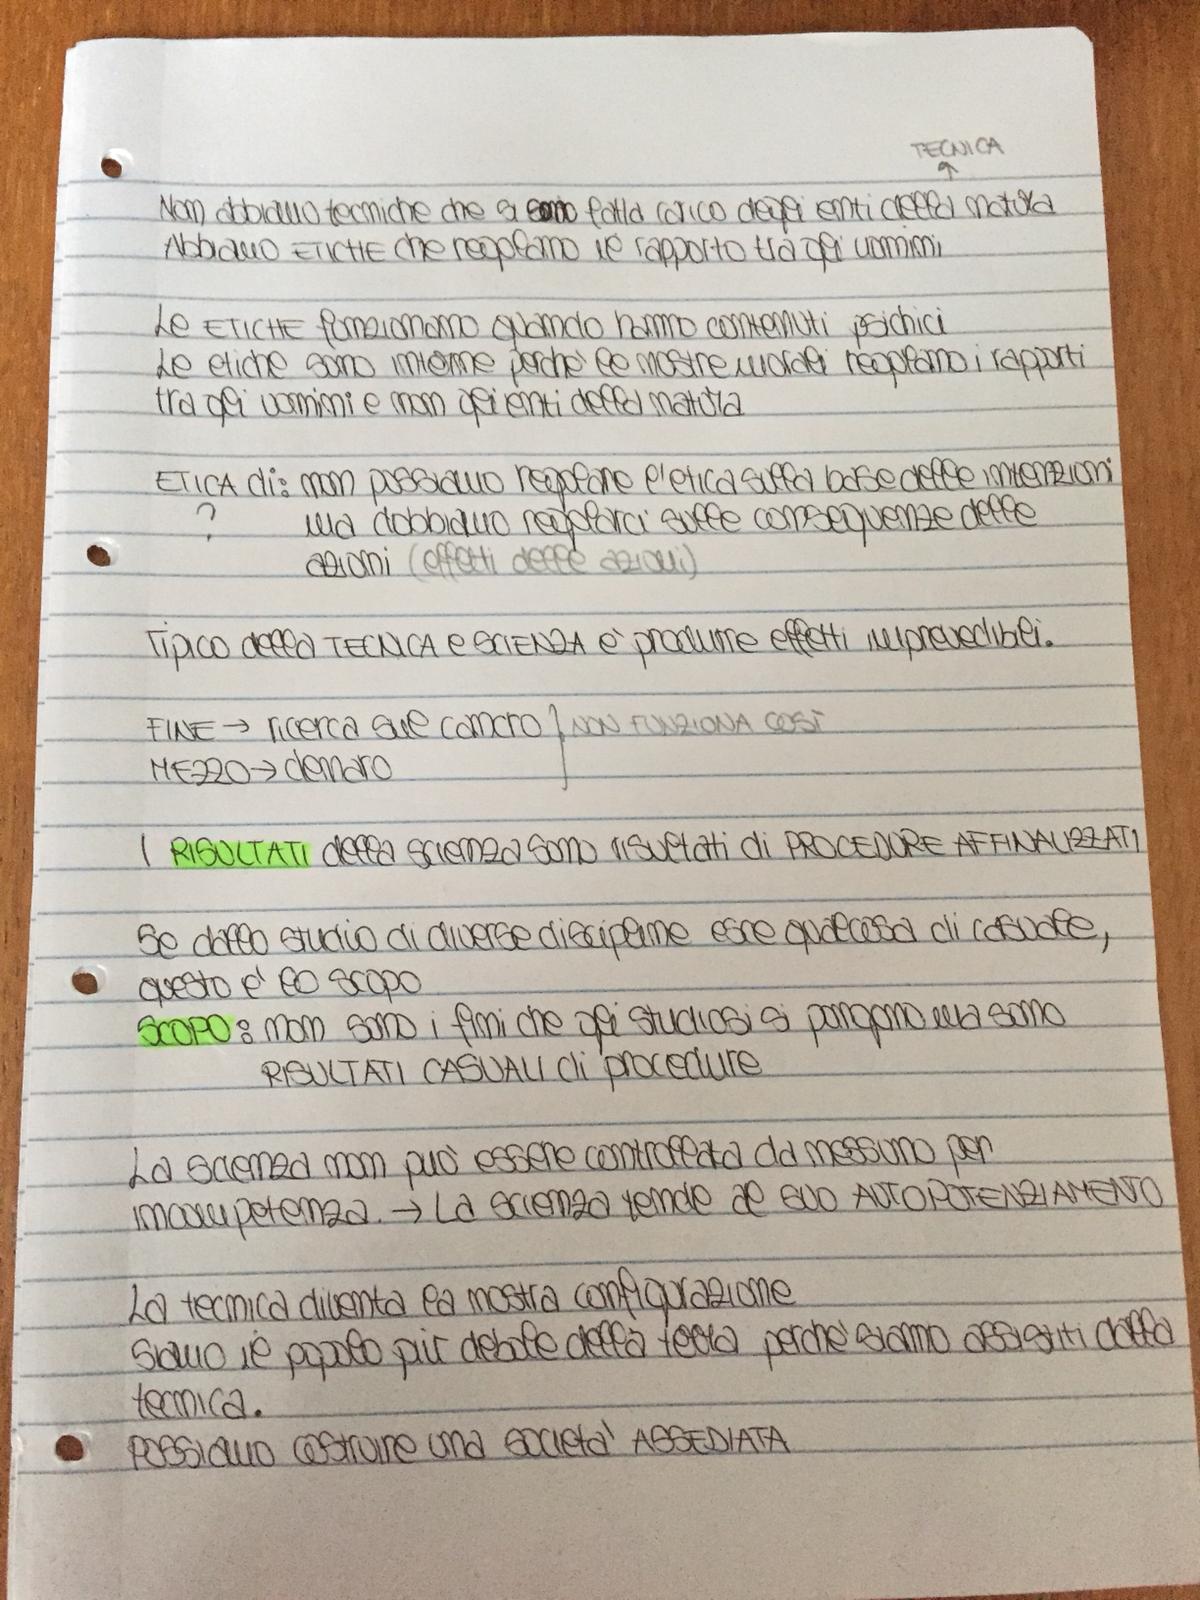 TECNICA
↑
Non abbiamo tecniche che si sono fatta carico degli enti della natura
Abbiamo ETICHE che regolano il rapporto tra gli uomini
Le ETICHE funzionano quando hanno contenuti psichici
Le etiche sono interne perché le nostre morali regolano i rapporti
tra gli uomini e non gli enti della natura
ETICA di: non possiamo regolare l'etica sulla base delle intenzioni
? ma dobbiamo regolarci sulle conseguenze delle
azioni (effetti delle azioni)
Tipico della TECNICA e SCIENZA è produrre effetti imprevedibili.
FINE → ricerca sul cancro } NON FUNZIONA COSÌ
MEZZO → denaro
I RISULTATI della scienza sono risultati di PROCEDURE AFFINALIZZATI
Se dallo studio di diverse discipline esce qualcosa di casuale,
questo è lo scopo
SCOPO: non sono i fini che gli studiosi si pongono ma sono
RISULTATI CASUALI di procedure
La scienza non può essere controllata da nessuno per
incompetenza. → La scienza tende al suo AUTOPOTENZIAMENTO
La tecnica diventa la nostra configurazione
Siamo il popolo più debole della terra perché siamo assistiti dalla
tecnica.
POSSIAMO costruire una società ASSEDIATA